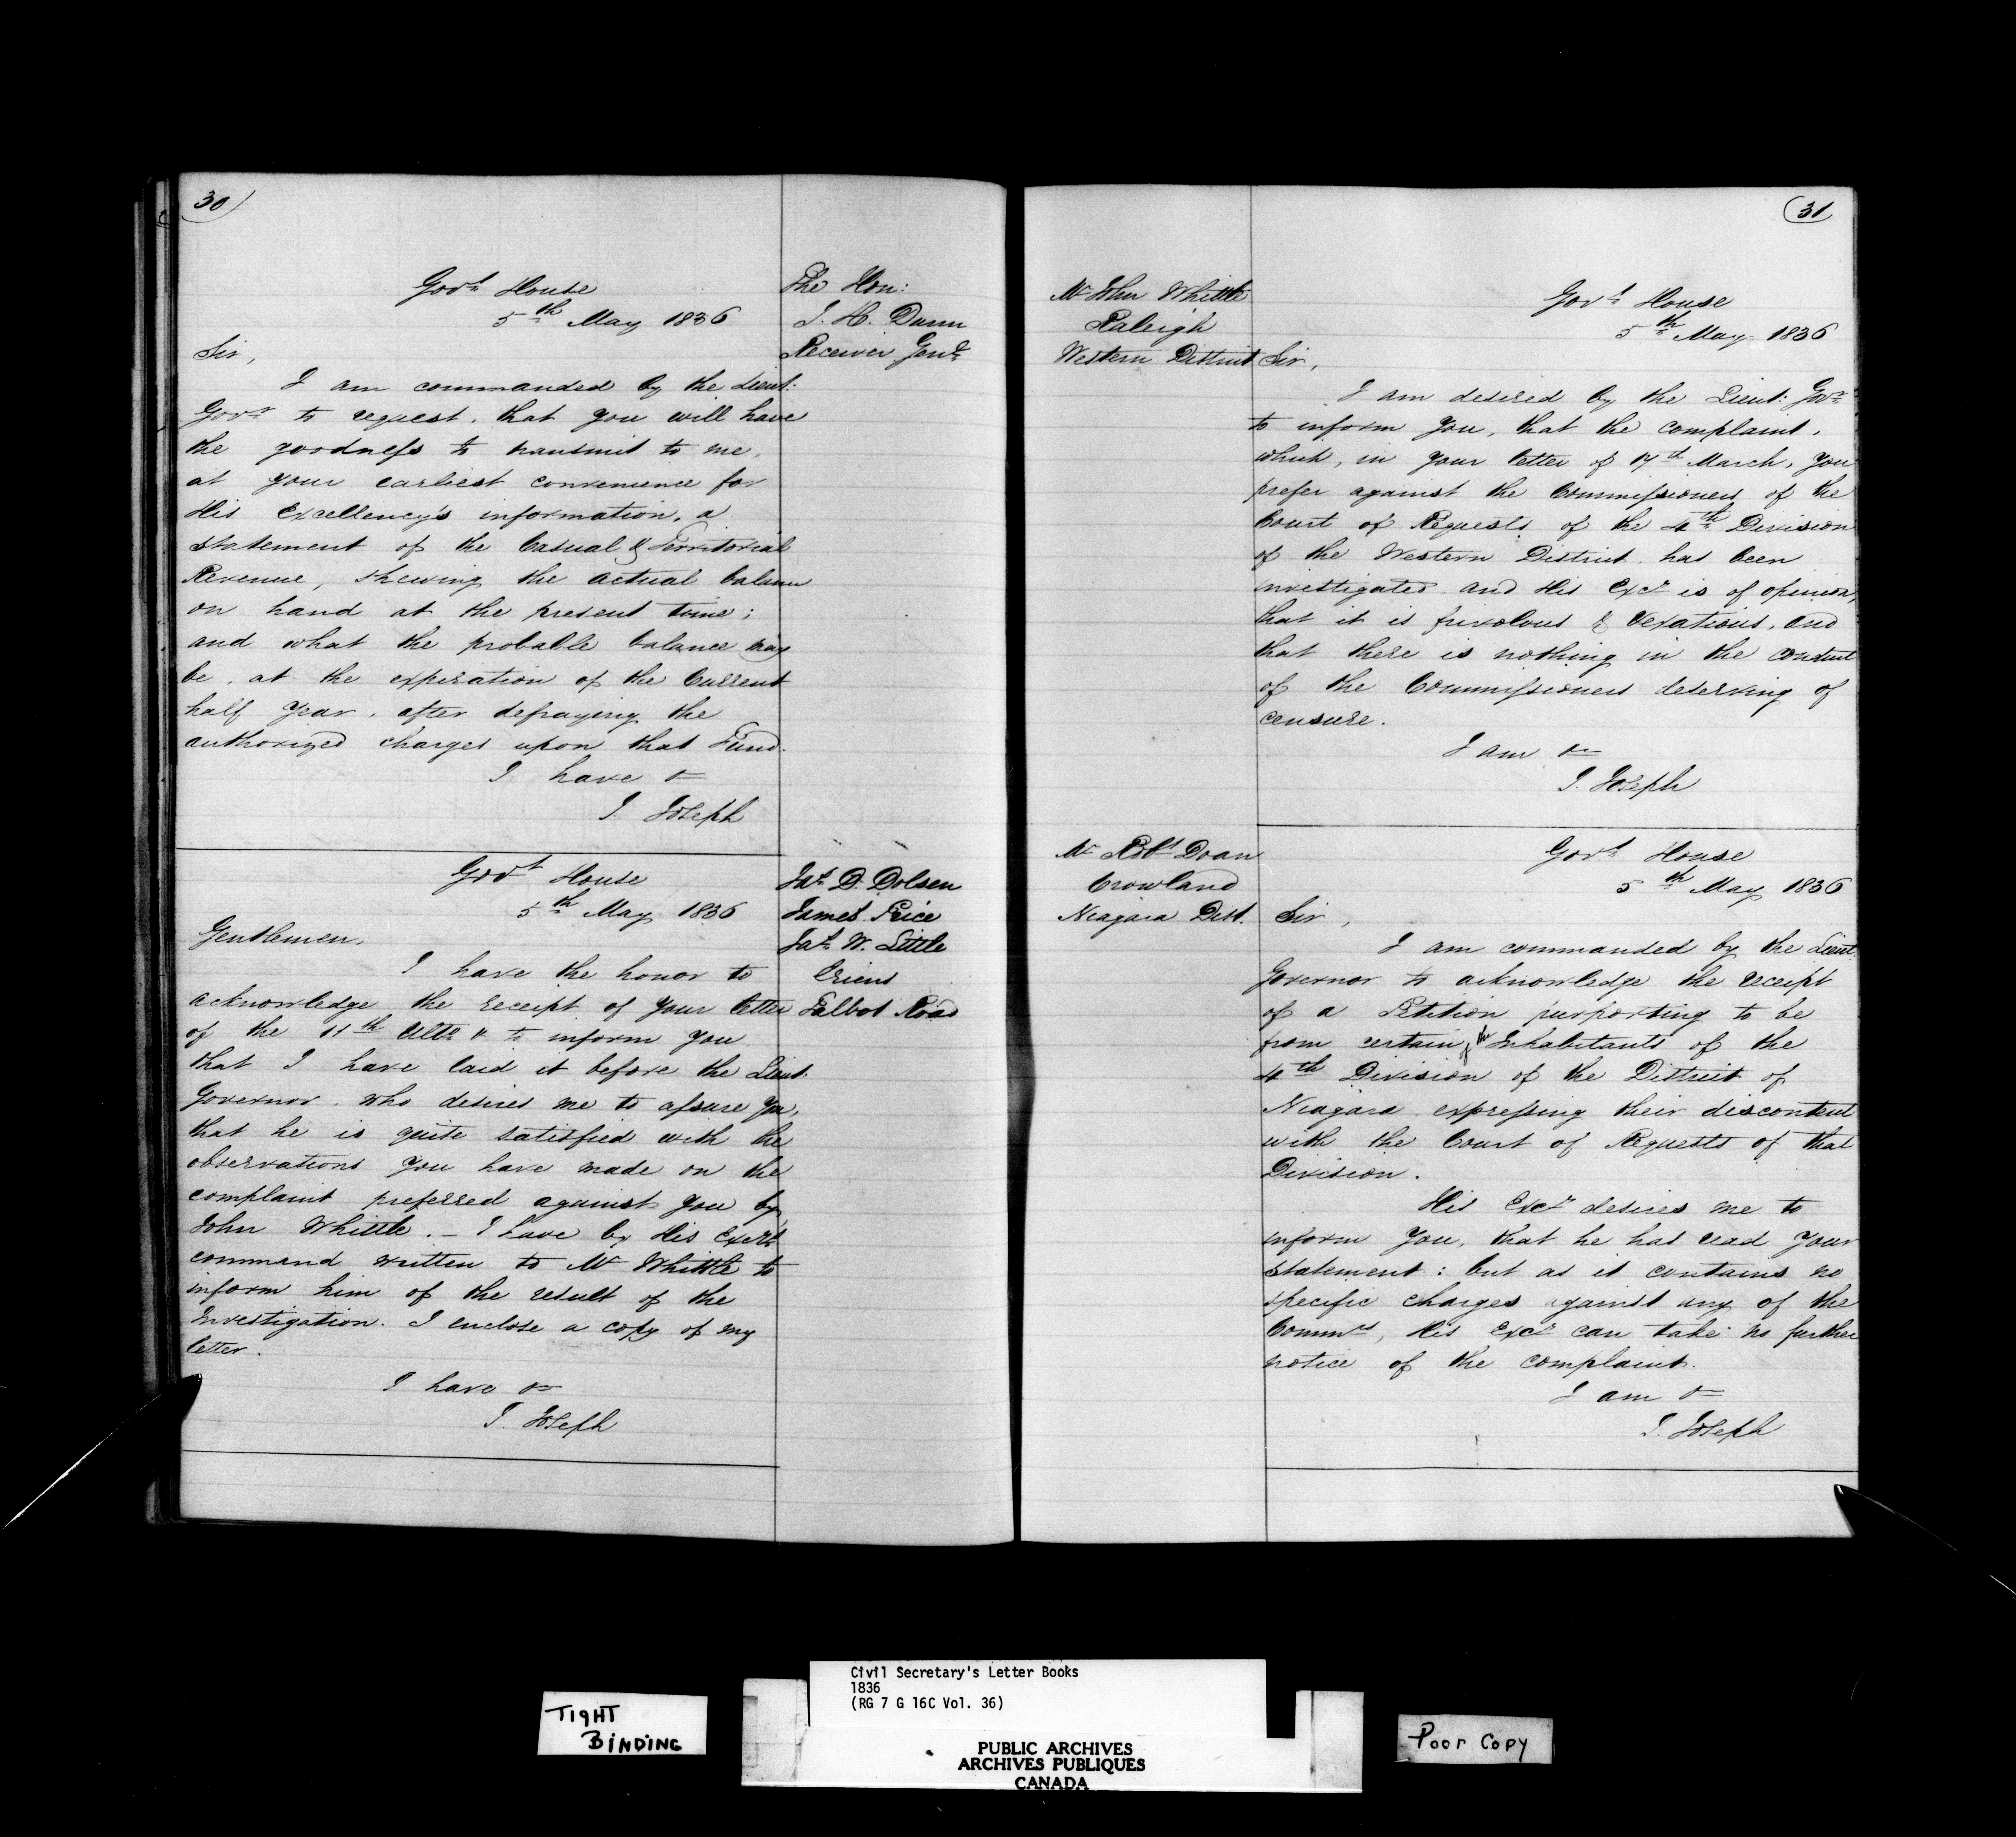 30
Govt House
5th May 1836
The Hon:
J. H. Dunn
Receiver Genl
Sir,
I am commanded by the Lieut:
Govr to request, that you will have
the goodness to transmit to me,
at your earliest convenience for
His Excellency's information, a
statement of the Casual & Territorial
Revenue, shewing the actual balance
on hand at the present time;
and what the probable balance may
be, at the expiration of the Current
half year, after defraying the
authorized charges upon that Fund.
I have &c
J. Joseph
Govt House
5th May 1836
Jas D. Dolsen
James Price
Jas W. Little
Erieus
Talbot Road
Gentlemen,
I have the honor to
acknowledge the receipt of your letter
of the 11th Ulto & to inform you
that I have laid it before the Lieut.
Governor, who desires me to assure you,
that he is quite satisfied with the
observations you have made on the
complaint preferred against you by
John Whittle. – I have by His Excy's
command written to Mr Whittle to
inform him of the result of the
Investigation. I enclose a copy of my
letter.
I have &c
J. Joseph
31
Mr John Whittle
Raleigh
Western District
Govt House
5th May 1836
Sir,
I am desired by the Lieut: Govr
to inform you, that the complaint,
which, in your letter of 17th March, you
prefer against the Commissioners of the
Court of Requests of the 4th Division
of the Western District has been
investigated and His Excy is of opinion,
that it is frivolous & vexatious, and
that there is nothing in the conduct
of the Commissioners deserving of
censure.
I am &c
J. Joseph
Mr Robt Doan
Crowland
Niagara Dist.
Govt House
5th May 1836
Sir,
I am commanded by the Lieut
Governor to acknowledge the receipt
of a Petition purporting to be
from certain of the Inhabitants of the
4th Division of the District of
Niagara expressing their discontent
with the Court of Requests of that
Division.
His Excy desires me to
inform you, that he has read your
statement: but as it contains no
specific charges against any of the
Commrs, His Excy can take no further
notice of the complaint.
I am &c
J. Joseph
TIGHT
BINDING
Civil Secretary's Letter Books
1836
(RG 7 G 16C Vol. 36)
PUBLIC ARCHIVES
ARCHIVES PUBLIQUES
CANADA
Poor Copy